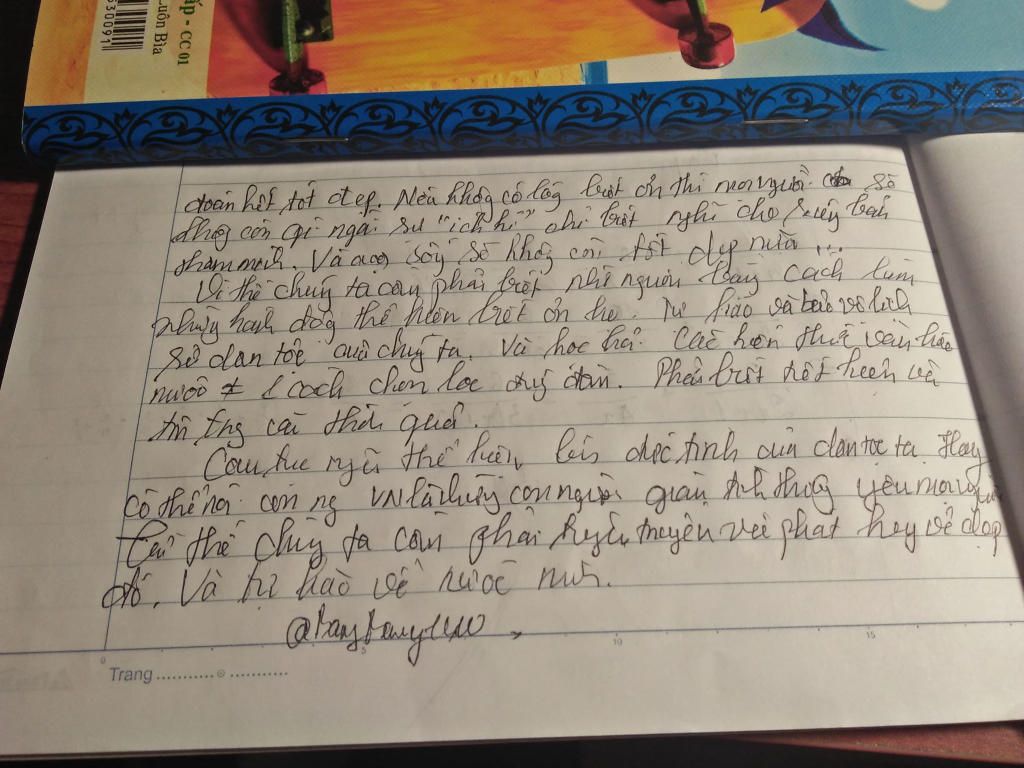 ấp - CC 01
uôn Bìa
930091
đoàn kết tốt đẹp. Nếu không có lòng biết ơn thì mọi người sẽ
sự "ích kỉ" chỉ biết nghĩ cho riêng bản
thân mình. Và cuộc sống sẽ không còn tốt đẹp nữa ...
Vì thế chúng ta cần phải biết nhớ nguồn bằng cách làm
những hành động thể hiện biết ơn họ. Tự hào và bảo vệ lịch
sử dân tộc của chúng ta. Và học hỏi các văn hóa
nước ≠ 1 cách chọn lọc đúng đắn. Phải biết
cái thành quả.
Câu tục ngữ thể hiện đức tính của dân tộc ta. Hay
có thể nói con ng VN là những con người giàu tình thương yêu mọi người
thế chúng ta cần phải truyền và phát huy vẻ đẹp
đó. Và tự hào về nước mình.
Trang
0 5 10 15